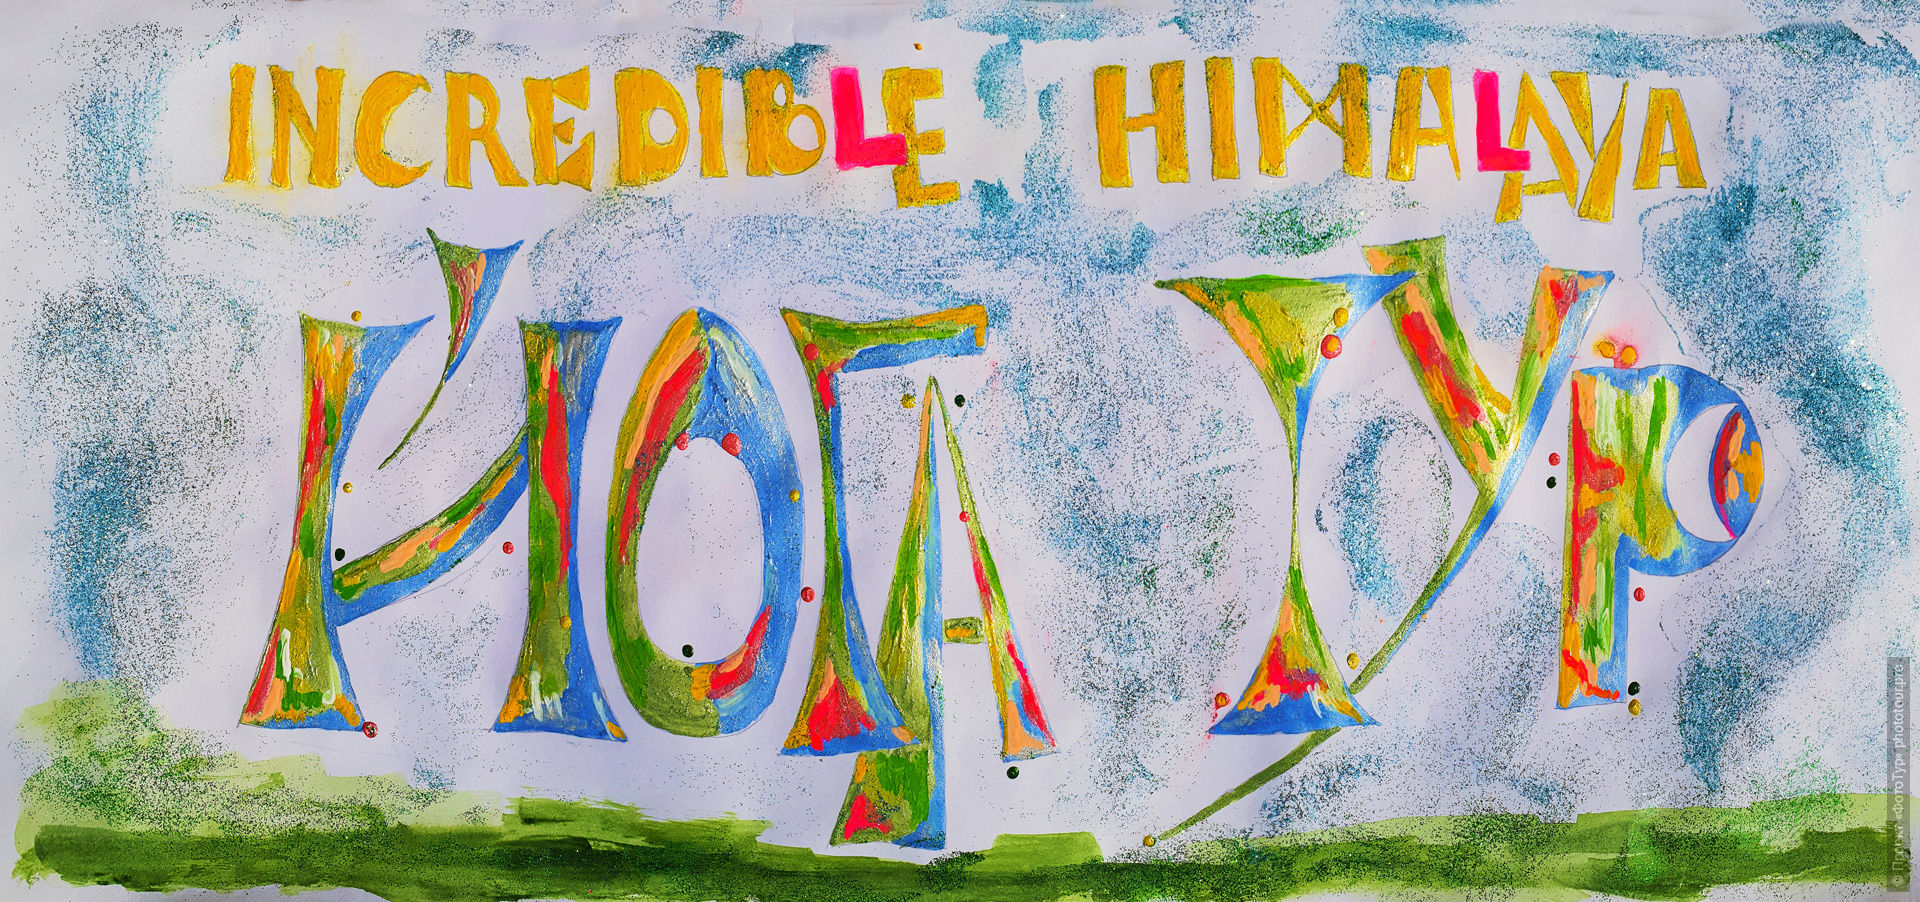 INCREDIBLE HIMALAYA
ЙОГА ТУР
© Проект «ФотоТур» phototour.pro